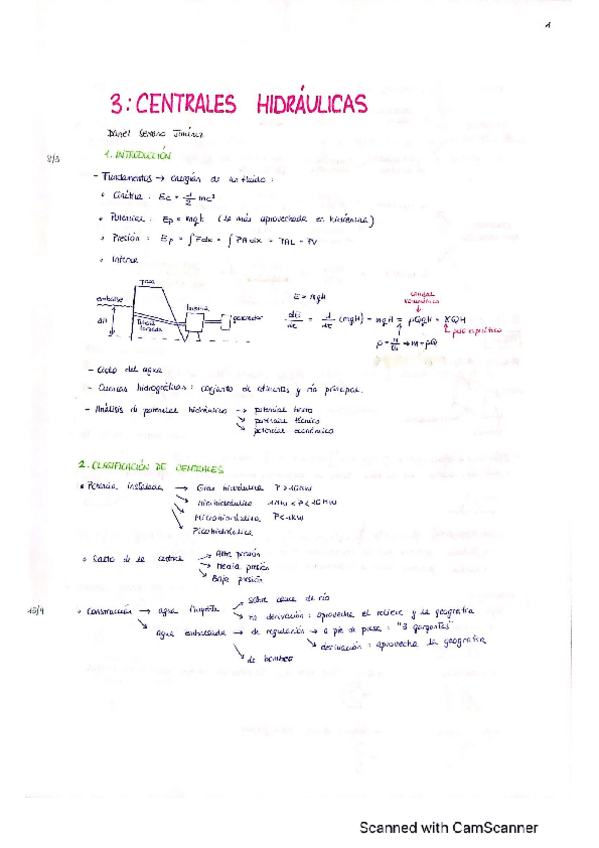 1
3: CENTRALES HIDRÁULICAS
Daniel Serrano Jiménez
8/3
1. INTRODUCCIÓN
- Fundamentos → energías de un fluido:
• Cinética: Ec = 1/2 mc²
• Potencial: Ep = mgh (la más aprovechada en hidráulica)
• Presión: Ep = ∫Fdx = ∫PAdx = PAL = PV
• Interna
Presa
embalse
ΔH
Tubería forzada
turbina
generador
E = mgH
caudal volumétrico
dE/dt = d/dt (mgH) = ṁgH = ρQgH = γQH
peso específico
- Ciclo del agua
- Cuencas hidrográficas: conjunto de afluentes y río principal.
- Análisis de potencial hidráulico → potencial bruto
potencial técnico
potencial económico
2. CLASIFICACIÓN DE CENTRALES
• Potencia instalada → Gran hidráulica P > 10 MW
Minihidráulica 1 MW < P < 10 MW
Microhidráulica
Picohidráulica
• Salto de la central → Alta presión
→ Media presión
→ Baja presión
• Construcción → agua fluyente → sobre cauce de río
derivación: aprovecha el relieve y la geografía
agua embalsada → de regulación → a pie de presa: "3 gargantas"
derivación: aprovecha la geografía
de bombeo
Scanned with CamScanner